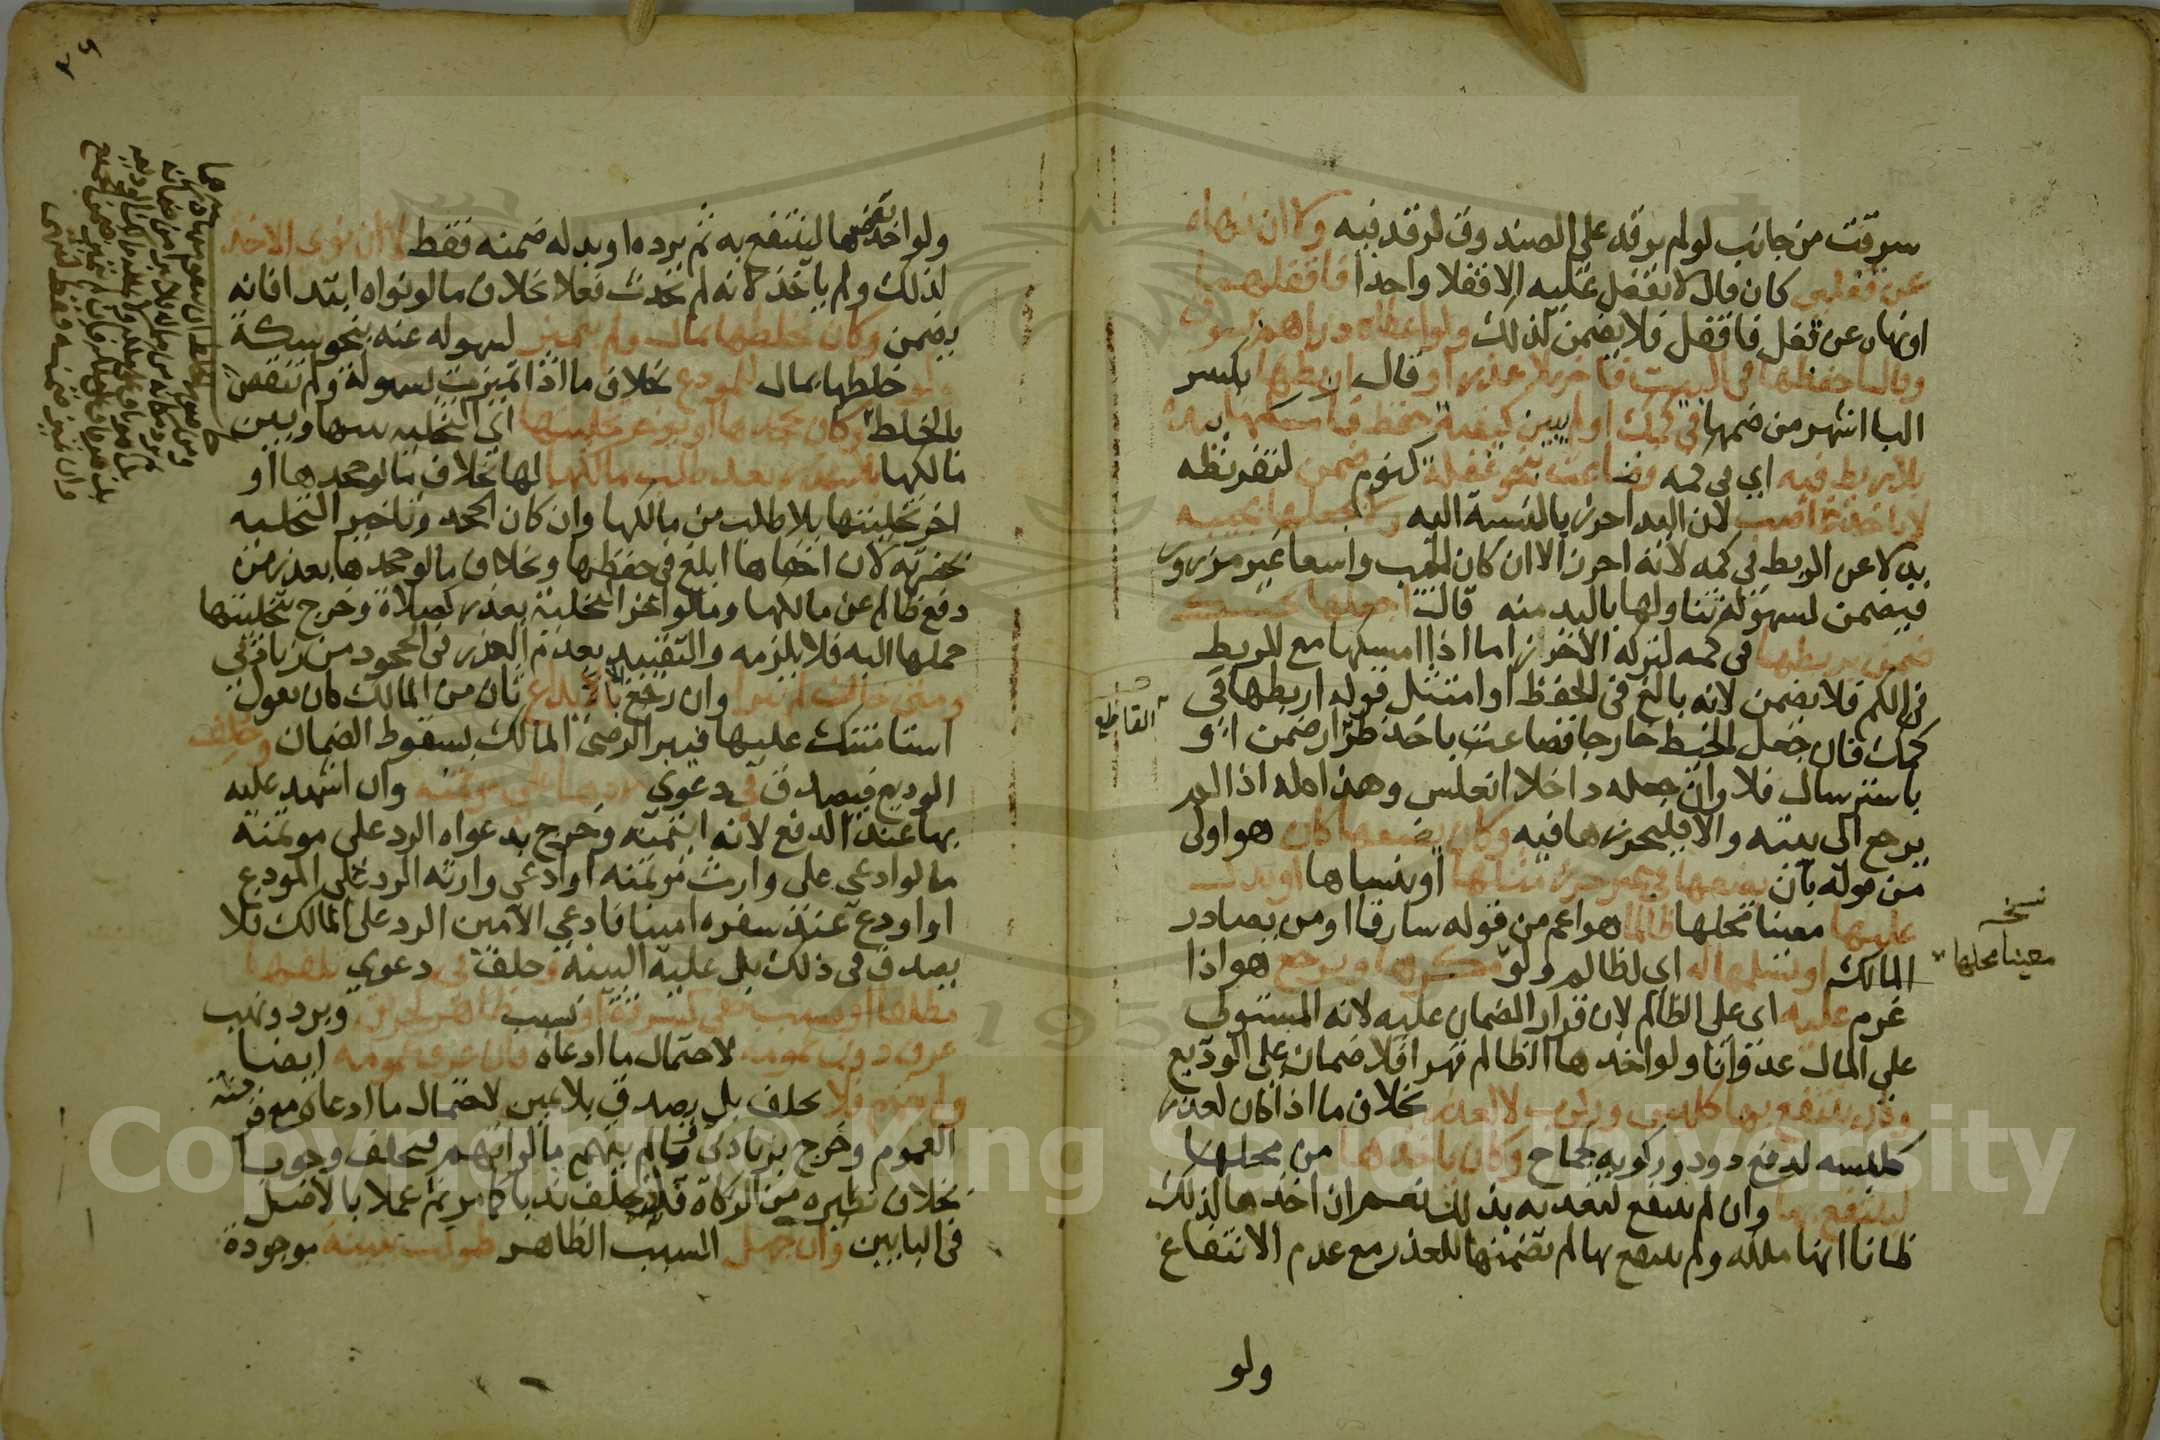 سرقت من جانب لو لم يرقد على الصندوق لرقد فيه ولا ان نهاه
عن قفلين كان قال لا تقفل عليه الا قفلا واحدا فاقفلهما
او نهاه عن قفل فاقفل فلا يضمن لذلك ولو اعطاه دراهم بسوق
وقال احفظها في البيت فاخر بلا عذر او قال اربطها بكسر
البا اشهر من ضمها في كمك او لم يبين كيفية حفظ فامسكها بيده
بلا ربط فيه اي في كمه وضاعت بنحو غفلة كنوم ضمن لتفريطه
لا باخذ غاصب لان اليد احرز بالنسبة اليه ولا بجعلها بجيبه
بدلا عن الربط في كمه لانه احرز الا ان كان الجيب واسعا غير مزرور
فيضمن لسهولة تناولها باليد منه قال اجعلها بجيبك
ضمن بربطها في كمه لتركه الاحرز اما اذا امسكها مع الربط
في الكم فلا يضمن لانه بالغ في الحفظ او امتثل قوله اربطها في
كمك فان جعل الخيط خارجا فضاعت باخذ طرار ضمن او
القاطع
باسترسال فلا وان جعله داخلا انعكس وهذا كله اذا لم
يرجع الى بيته والا فليحرزها فيه وكان يضيعها كان هو اولى
من قوله بان يضعها في غير حرز مثلها او ينساها او يدل
عليها معينا محلها ظالما هو اعم من قوله سارقا او من يصادر
نسخة
معينا محلها
المالك او يسلمها له اي لظالم ولو مكرها ويرجع هو اذا
غرم عليه اي على الظالم لان قرار الضمان عليه لانه المستولي
على المال عدوانا ولو اخذها الظالم قهرا فلا ضمان على الوديع
وكان ينتفع بها كلبس وركوب لا لعذر بخلاف ما اذا كان لعذر
كلبسه لدفع دود وركوبه لجماح وكان ياخذها من محلها
لينتفع بها وان لم ينتفع لتعديه بذلك نعم ان اخذها لذلك
ظانا انها ملكه ولم ينتفع بها لم يضمنها للعذر مع عدم الانتفاع
ولو
ولو اخذ بعضها لينتفع به ثم يرده او بدله ضمنه فقط لا ان نوى الاخذ
لذلك ولم ياخذ لانه لم يحدث فعلا بخلاف ما لو نواه ابتدا فانه
يضمن وكان خلطها بمال ولم تتميز لسهوله عنه بنحو سكة
ولو خلطها بمال للمودع بخلاف ما اذا تميزت بسهولة ولم تنقص
بالخلط وكان جحدها او يؤخر تخليتها اي التخلية بينها وبين
مالكها بلا عذر بعد طلب مالكها لها بخلاف ما لو جحدها او
اخر تخليتها بلا طلب من مالكها وان كان الجحد وتاخير التخلية
بحضرته لان اخفاها ابلغ في حفظها وبخلاف ما لو جحدها بعذر من
دفع ظالم عن مالكها وما لو اخر التخلية بعذر كصلاة وخرج بتخليتها
حملها اليه فلا يلزمه والتقييد بعدم العذر في الجحود من زيادتي
ومتى خالف لم يبرا وان رجع الا بايداع ثان من المالك كان يقول
استامنتك عليها فيبرا لرضى المالك بسقوط الضمان وحلف
الوديع فيصدق في دعوى ردها على مؤتمنه وان اشهد عليه
بها عند الدفع لانه ائتمنه وخرج بدعواه الرد على مؤتمنه
ما لو ادعى على وارث مؤتمنه او ادعى وارثه الرد على المودع
او اودع عند سفره امينا فادعى الامين الرد على المالك فلا
يصدق في ذلك بل عليه البينة وحلف في دعوى تلفها
مطلقا او بسبب خفي كسرقة او بسبب ظاهر كحريق وبرد ونهب
عرف دون عمومه لاحتمال ما ادعاه فان عرف عمومه ايضا
ولم يتهم فلا يحلف بل يصدق بلا يمين لاحتمال ما ادعاه مع قرينة
العموم وخرج بزيادتي ولم يتهم ما لو اتهم فيحلف وجوبا
بخلاف نظيره من الزكاة فانه يحلف ندبا كما مر ثم عملا بالاصل
في البابين وان جهل السبب الظاهر طولب ببينة بوجوده